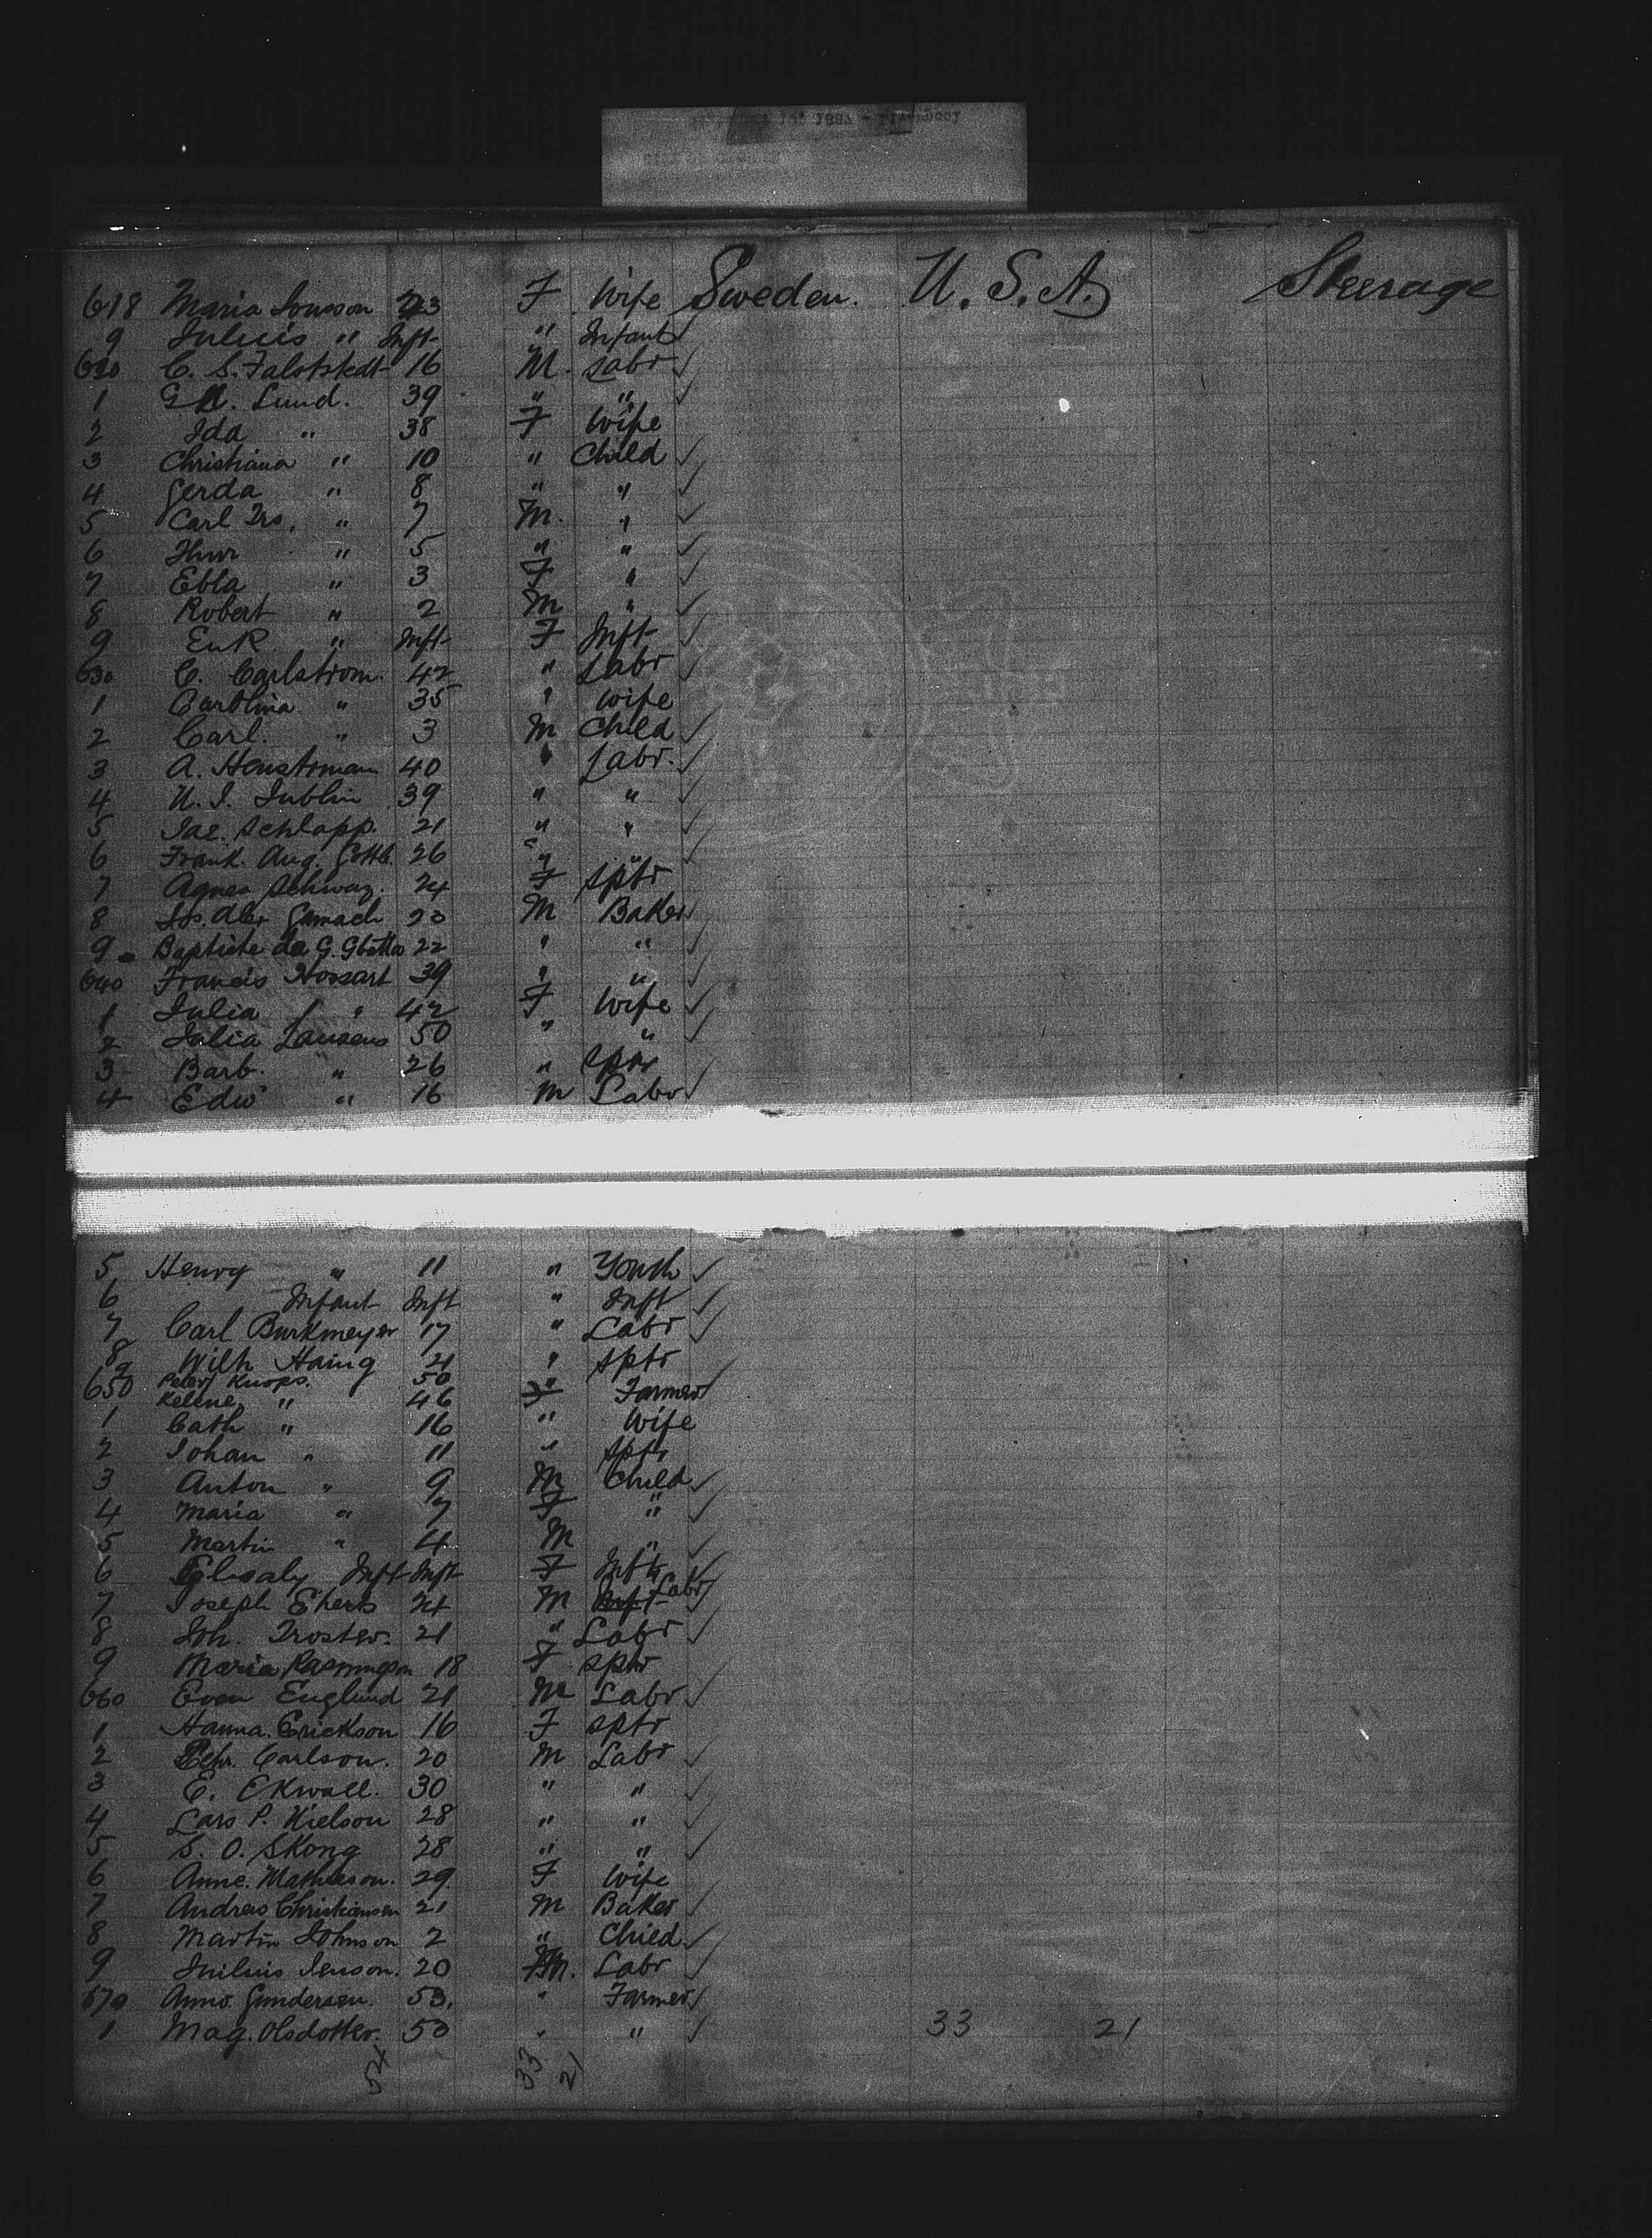 618 Maria Jonsson 23 F Wife Sweden. U.S.A. Steerage
9 Julius " Inft " Infant
620 C. S. Falstedt 16 M. Labr
1 G A. Lund. 39 " "
2 Ida " 38 F Wife
3 Christiana " 10 " Child
4 Gerda " 8 " "
5 Carl Irs. " 7 M. "
6 Thur " 5 " "
7 Ebla " 3 F "
8 Robert " 2 M "
9 " Inft F Inft
630 C. Carlstrom. 42 " Labr
1 Carolina " 35 " Wife
2 Carl. " 3 M Child
3 A. 40 " Labr.
4 39 " "
5 Schlapp. 21 " "
6 Frank. Aug. Gottl. 26 "
7 Agnes Schwaz. 24 F sptr
8 Gamach 20 M Baker
9 Baptiste da G. 22 " "
640 Francis Hossart 39 " "
1 Julia " 42 F Wife
2 Julia Lausens 50 " "
3 Barb. " 26 " sptr
4 Edw " 16 M Labr
5 Henry " 11 " Youth
6 Infant Inft " Inft
7 Carl Burkmeyer 17 " Labr
8 Wilh Haing 21 " sptr
9 Peter Knops. 50 " Farmer
650 Kelene " 46 F
1 Cath " 16 " Wife
2 Johan " 11 " sptr
3 Anton " 9 M Child
4 Maria " 7 F "
5 Martin " 4 M "
6 Inft Inft F Inft
7 Joseph Eherts 24 M Inft Labr
8 Joh. Troster. 21 " Labr
9 Maria Rasmungson 18 F sptr
660 Even Englund 21 M Labr
1 Hanna. Erickson 16 F sptr
2 Pehr. Carlson. 20 M Labr
3 E. Ekwall. 30 " "
4 Lars P. Nielson 28 " "
5 S. O. Skong 28 " "
6 Anne. Mathieson. 29. F Wife
7 Andreas Christiansen 21 M Baker
8 Martin Johnson 2 " Child
9 Jenson. 20 M. Labr
670 Anno. Gundersen. 53. " Farmer
1 Mag. Olsdotter. 50 " " 33 21
54 33 21